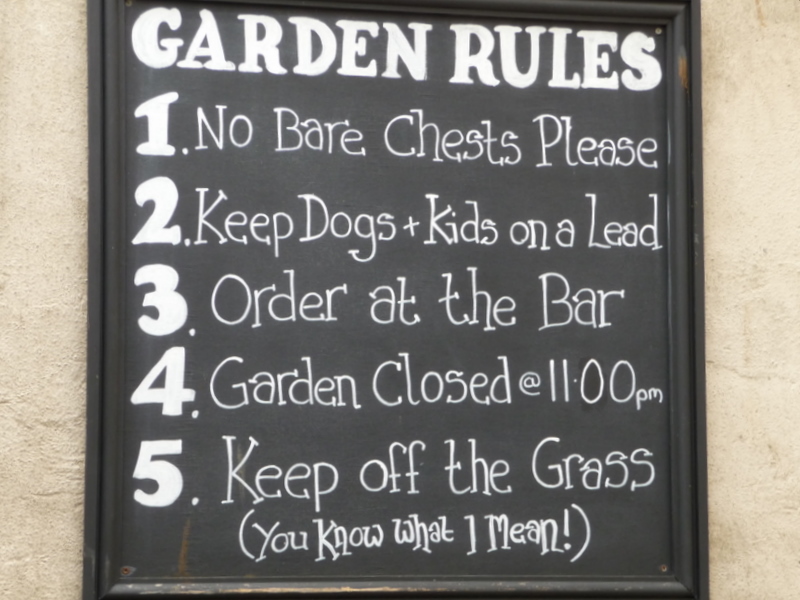 GARDEN RULES
1. No Bare Chests Please
2. Keep Dogs + Kids on a Lead
3. Order at the Bar
4. Garden Closed @ 11·00pm
5. Keep off the Grass
(You Know What I Mean!)